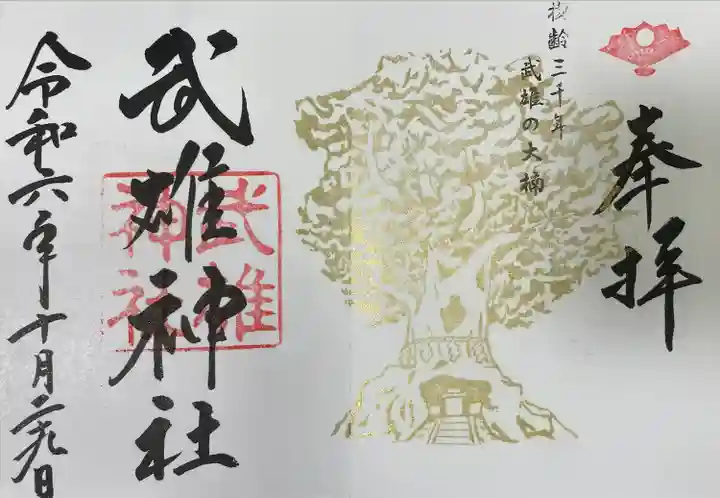 奉拝
樹齢三千年
武雄の大楠
武雄神社
武雄
神社
令和六年十月二十九日